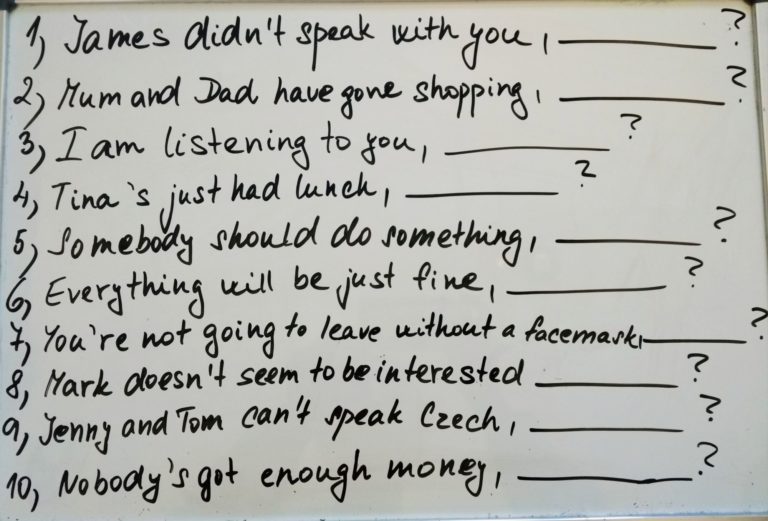 1, James didn't speak with you, ________?
2, Mum and Dad have gone shopping, ________?
3, I am listening to you, ________?
4, Tina's just had lunch, ________?
5, Somebody should do something, ________?
6, Everything will be just fine, ________?
7, You're not going to leave without a facemask, ________?
8, Mark doesn't seem to be interested ________?
9, Jenny and Tom can't speak Czech, ________?
10, Nobody's got enough money, ________?